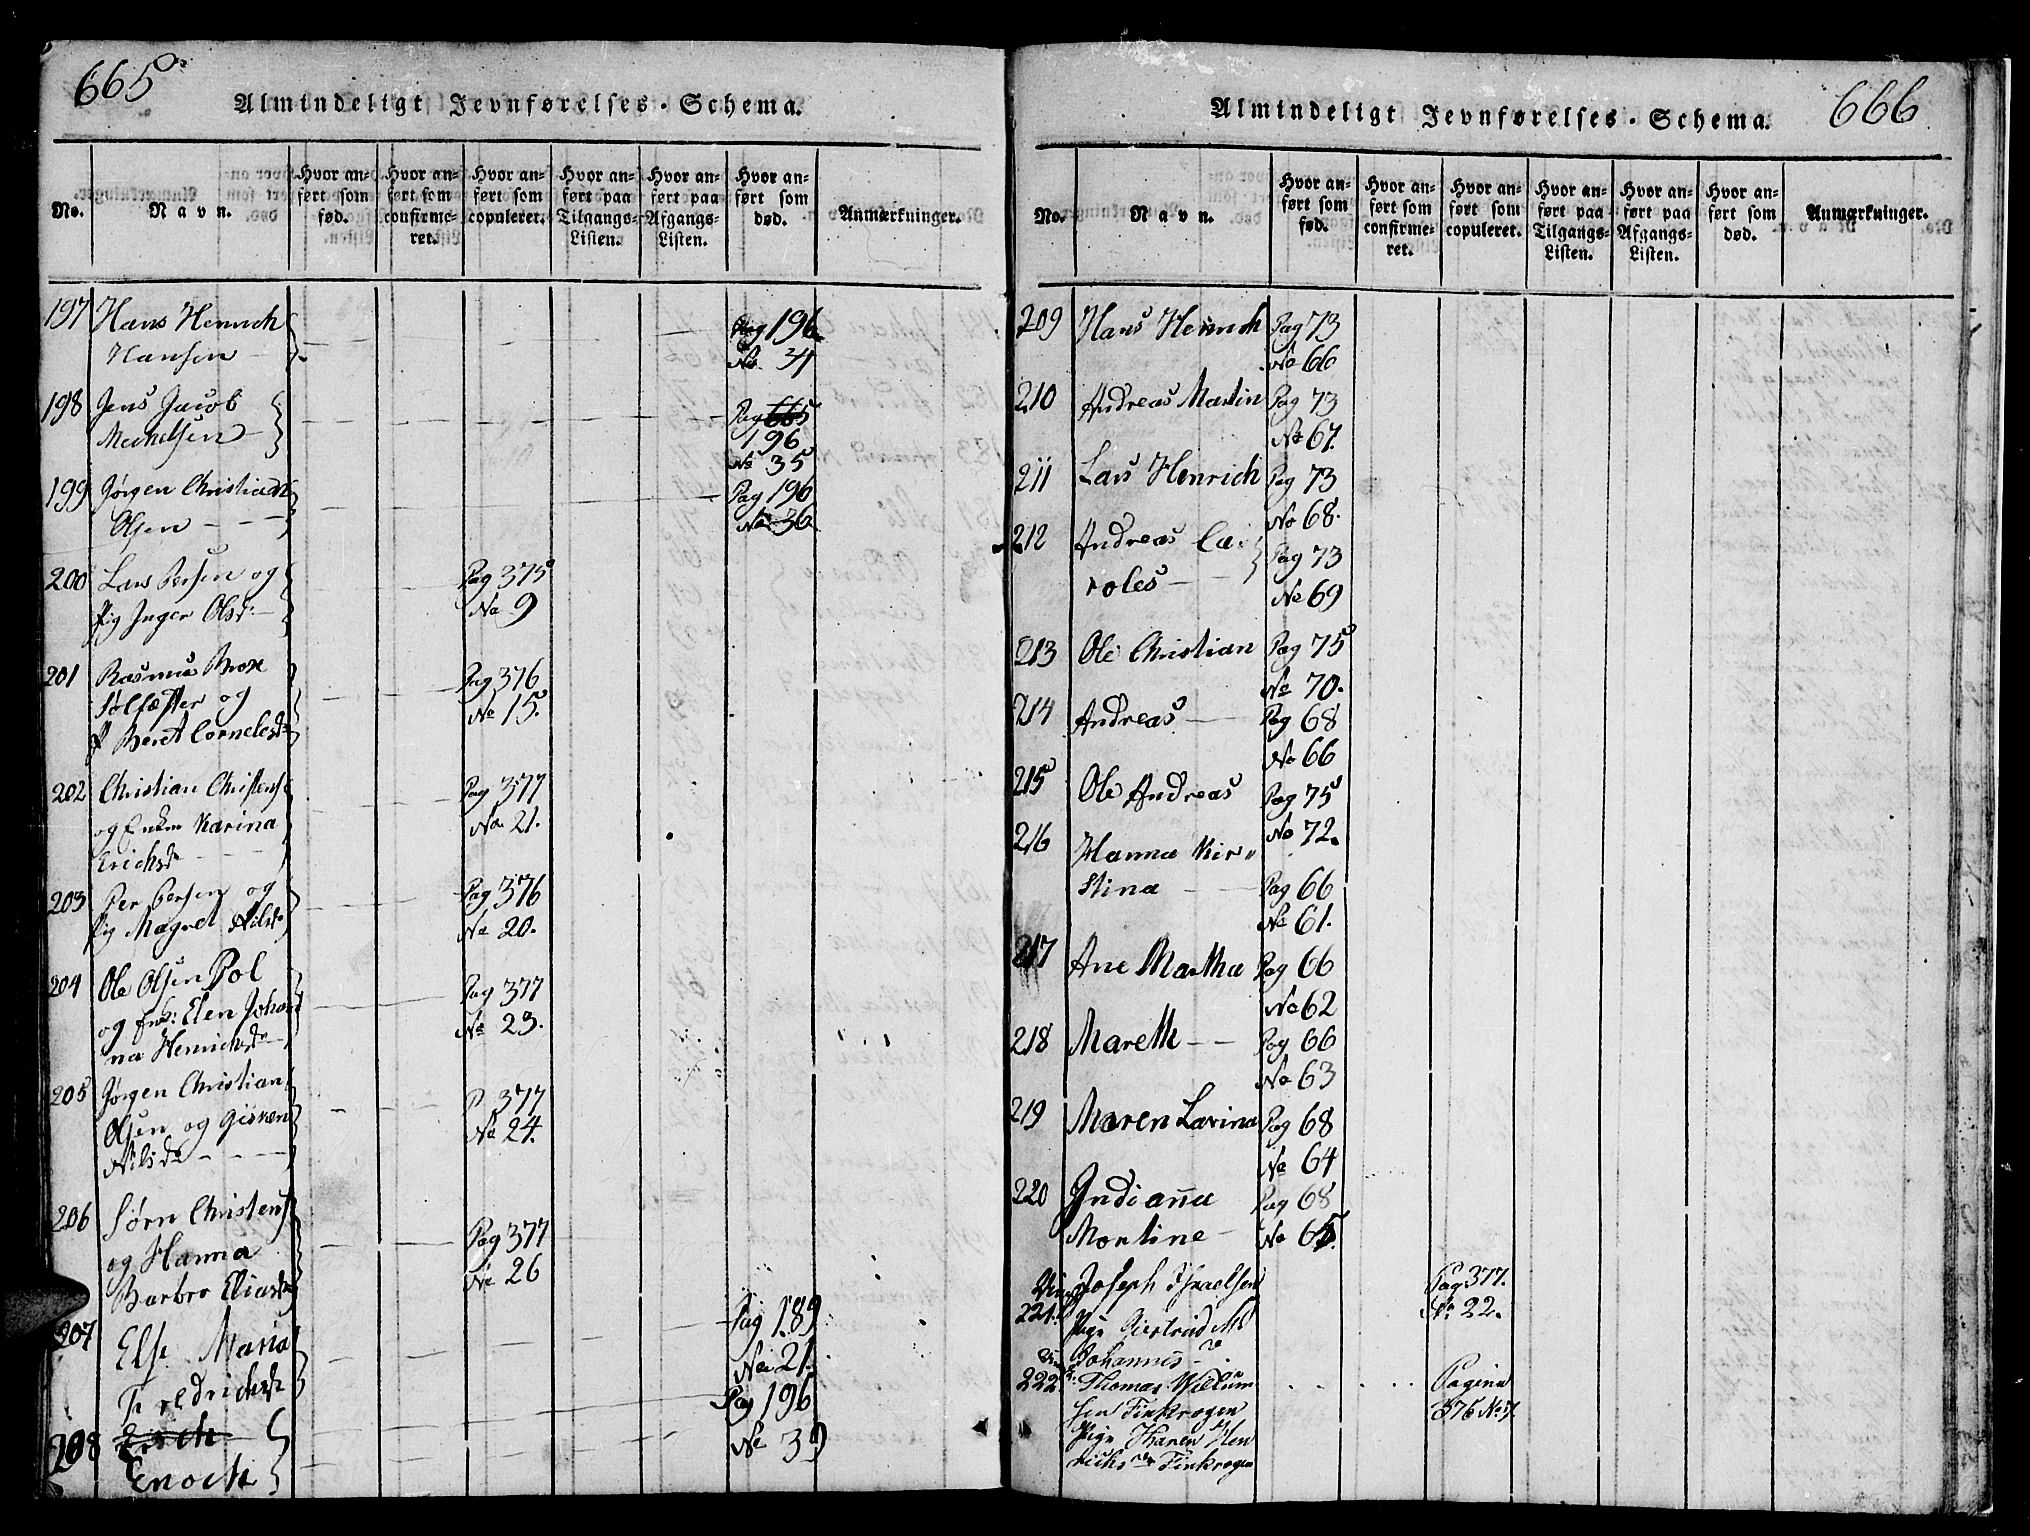 665
Almindeligt Jevnførelses-Schema.
No.
Navn.
Hvor anført som fød.
Hvor anført som confirmeret.
Hvor anført som copuleret.
Hvor anført paa Tilgangs-Listen.
Hvor anført paa Afgangs-Listen.
Hvor anført som død.
Anmærkninger.
197 Hans Henrich Pag 196
Hansen No 34
198 Jens Jacob Pag 665
Mechelsen 196
No 35
199 Jørgen Christian Pag 196
Olsen No 36
200 Lars Persen og Pag 375
Pig Inger Olsd: No 9
201 Rasmus Brox Pag 376
Sølfæster og No 15.
P Beret Cornelesdr
202 Christian Christens Pag 377
og Enken Karina No 21.
Erichsdr
203 Per Persen og Pag 376
Pig Magret Nilsdr No 20.
204 Ole Olsen Pol Pag 377
og Enk: Elen Johan No 23.
na Henrichsdr
205 Jørgen Christian P 377
Olsen og Gisken No 24.
Nilsdr
206 Sørn Christens
og Hanna Pag 377
Barbro Eliasdr No 26
207 Else Maria Pag 189
Fredrichsdr No 21.
208 Erich Pag 196
Enoch No 39
666
Almindeligt Jevnførelses-Schema.
No.
Navn.
Hvor anført som fød.
Hvor anført som confirmeret.
Hvor anført som copuleret.
Hvor anført paa Tilgangs-Listen.
Hvor anført paa Afgangs-Listen.
Hvor anført som død.
Anmærkninger.
209 Hans Henrich Pag 73
No 66
210 Andreas Martin Pag 73
No 67.
211 Lars Henrich Pag 73
No 68.
212 Andreas Ca
roles Pag 73
No 69
213 Ole Christian Pag 75
No 70.
214 Andreas Pag 68
No 66
215 Ole Andreas Pag 75
No 72.
216 Hanna Kir"
stina Pag 66
No 61.
217 Ane Martha Pag 66
No 62
218 Mareth Pag 66
No 63
219 Maren Larina Pag 68
No 64
220 Indianna Pag 68
Montine No 65.
Joseph Israelsen Pag 377.
221. No 22.
Pige Giertrud M
Johannis
222. Thomas Willum Pagina
sen Finkrogen 376 No 7.
Pige Karen Hen
richs Finkrogen